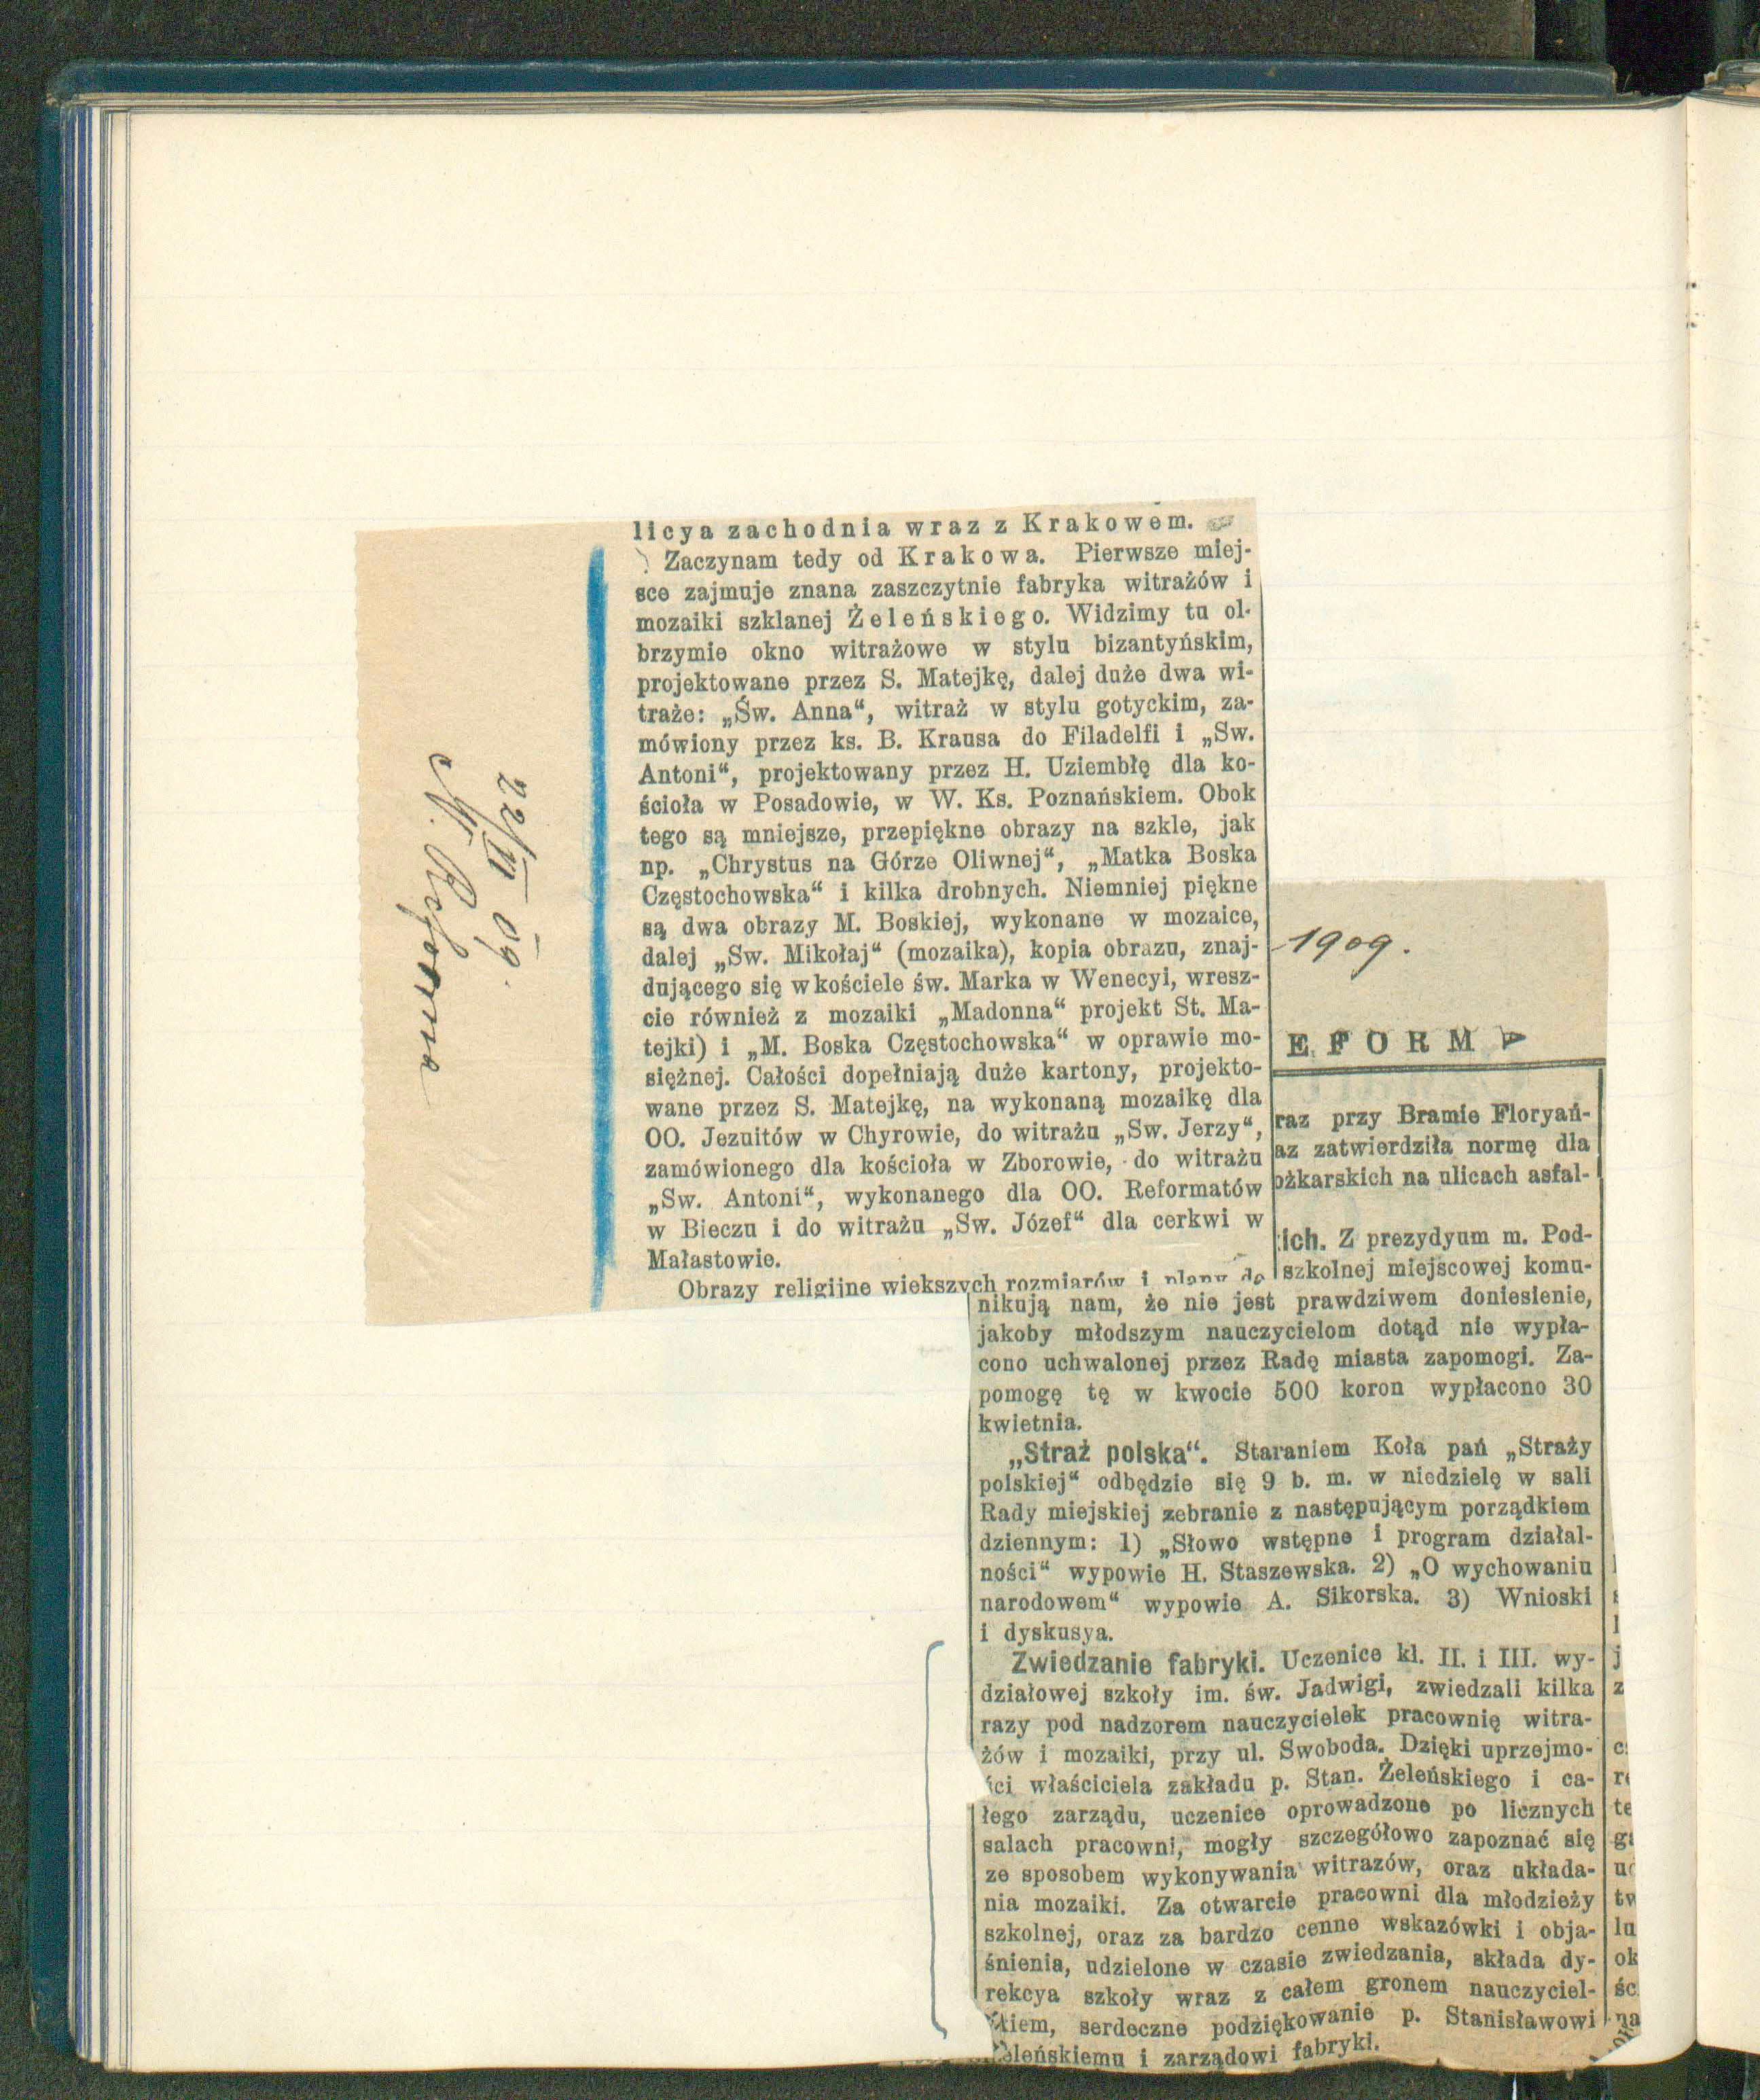 22/VI 09.
N. Reforma
licya zachodnia wraz z Krakowem.
Zaczynam tedy od Krakowa. Pierwsze miej-
sce zajmuje znana zaszczytnie fabryka witrażów i
mozaiki szklanej Żeleńskiego. Widzimy tu ol-
brzymie okno witrażowe w stylu bizantyńskim,
projektowane przez S. Matejkę, dalej duże dwa wi-
traże: „Św. Anna“, witraż w stylu gotyckim, za-
mówiony przez ks. B. Krausa do Filadelfi i „Sw.
Antoni“, projektowany przez H. Uziembłę dla ko-
ścioła w Posadowie, w W. Ks. Poznańskiem. Obok
tego są mniejsze, przepiękne obrazy na szkle, jak
np. „Chrystus na Górze Oliwnej“, „Matka Boska
Częstochowska“ i kilka drobnych. Niemniej piękne
są dwa obrazy M. Boskiej, wykonane w mozaice,
dalej „Sw. Mikołaj“ (mozaika), kopia obrazu, znaj-
dującego się w kościele św. Marka w Wenecyi, wresz-
cie również z mozaiki „Madonna“ projekt St. Ma-
tejki) i „M. Boska Częstochowska“ w oprawie mo-
siężnej. Całości dopełniają duże kartony, projekto-
wane przez S. Matejkę, na wykonaną mozaikę dla
OO. Jezuitów w Chyrowie, do witrażu „Sw. Jerzy“,
zamówionego dla kościoła w Zborowie, do witrażu
„Sw. Antoni“, wykonanego dla OO. Reformatów
w Bieczu i do witrażu „Sw. Józef“ dla cerkwi w
Małastowie.
Obrazy religijne większych rozmiarów i plany do
1909.
EFORMA
raz przy Bramie Floryań-
az zatwierdziła normę dla
ożkarskich na ulicach asfal-
ich. Z prezydyum m. Pod-
szkolnej miejscowej komu-
nikują nam, że nie jest prawdziwem doniesienie,
jakoby młodszym nauczycielom dotąd nie wypła-
cono uchwalonej przez Radę miasta zapomogi. Za-
pomogę tę w kwocie 500 koron wypłacono 30
kwietnia.
„Straż polska“. Staraniem Koła pań „Straży
polskiej“ odbędzie się 9 b. m. w niedzielę w sali
Rady miejskiej zebranie z następującym porządkiem
dziennym: 1) „Słowo wstępne i program działal-
ności“ wypowie H. Staszewska. 2) „O wychowaniu
narodowem“ wypowie A. Sikorska. 3) Wnioski
i dyskusya.
Zwiedzanie fabryki. Uczenice kl. II. i III. wy-
działowej szkoły im. św. Jadwigi, zwiedzali kilka
razy pod nadzorem nauczycielek pracownię witra-
żów i mozaiki, przy ul. Swoboda. Dzięki uprzejmo-
ści właściciela zakładu p. Stan. Żeleńskiego i ca-
łego zarządu, uczenice oprowadzone po licznych
salach pracowni, mogły szczegółowo zapoznać się
ze sposobem wykonywania witrazów, oraz układa-
nia mozaiki. Za otwarcie pracowni dla młodzieży
szkolnej, oraz za bardzo cenne wskazówki i obja-
śnienia, udzielone w czasie zwiedzania, składa dy-
rekcya szkoły wraz z całem gronem nauczyciel-
skiem, serdeczne podziękowanie p. Stanisławowi
Żeleńskiemu i zarządowi fabryki.